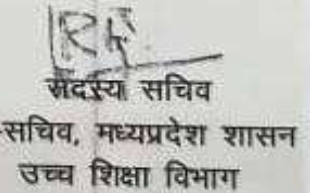 सदस्य सचिव
सचिव, मध्यप्रदेश शासन
उच्च शिक्षा विभाग